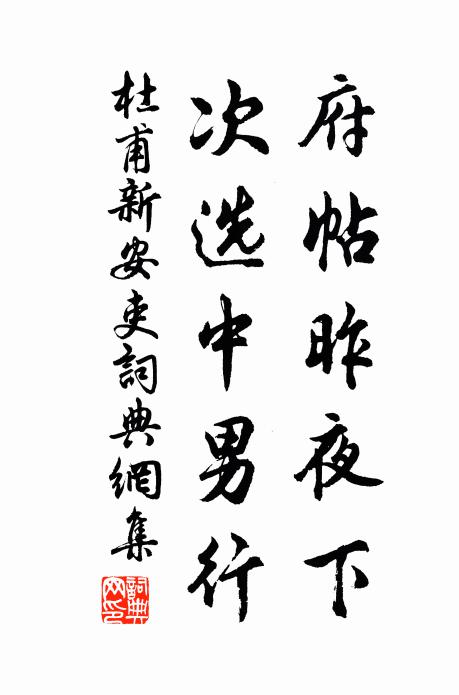 府帖昨夜下
次选中男行
杜甫新安吏詞典網集
詞典网印